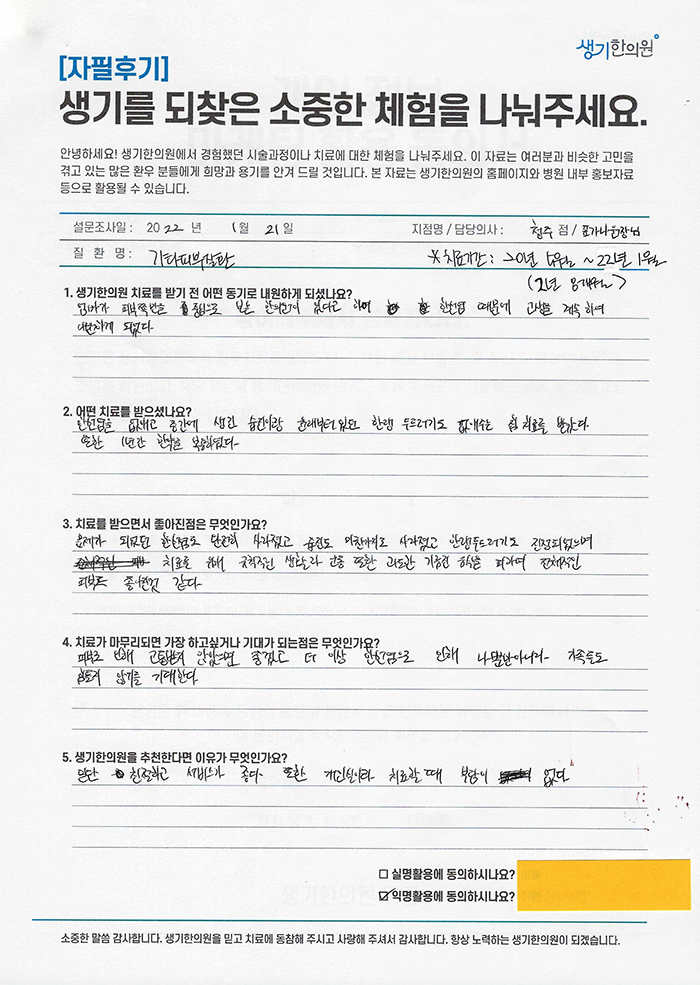 생기한의원
[자필후기]
생기를 되찾은 소중한 체험을 나눠주세요.
안녕하세요! 생기한의원에서 경험했던 시술과정이나 치료에 대한 체험을 나눠주세요. 이 자료는 여러분과 비슷한 고민을
겪고 있는 많은 환우 분들에게 희망과 용기를 안겨 드릴 것입니다. 본 자료는 생기한의원의 홈페이지와 병원 내부 홍보자료
등으로 활용될 수 있습니다.
설문조사일 : 2022 년 1월 21일 지점명 / 담당의사 : 청주 점 /
질 환 명 : 기타피부질환 *치료기간 : 20년 ~ 22년 1월
1. 생기한의원 치료를 받기 전 어떤 동기로 내원하게 되셨나요?
때문에 고생을 계속 하여
내원하게 되었다.
2. 어떤 치료를 받으셨나요?
없애고 중간에 생긴 습진이랑 원래부터 있던 한랭 두드러기도 없애주는 치료를 받았다.
또한 1년간 한약을 복용하였다.
3. 치료를 받으면서 좋아진점은 무엇인가요?
문제가 되었던 한관종도 완전히 사라졌고 습진도 마찬가지로 사라졌고 한랭두드러기도 진정되었으며
치료를 위해 규칙적인 생활습관 또한 과도한 기름진 음식을 피하여 전체적인
피부도 좋아진것 같다.
4. 치료가 마무리되면 가장 하고싶거나 기대가 되는점은 무엇인가요?
피부로 인해 고통받지 않았으면 좋겠고 더 이상 인해 나뿐만아니라 가족들도
않기를 기대한다.
5. 생기한의원을 추천한다면 이유가 무엇인가요?
일단 친절하고 서비스가 좋다. 또한 개인실이라 치료할때 부담이 없다.
□ 실명활용에 동의하시나요?
☑ 익명활용에 동의하시나요?
소중한 말씀 감사합니다. 생기한의원을 믿고 치료에 동참해 주시고 사랑해 주셔서 감사합니다. 항상 노력하는 생기한의원이 되겠습니다.